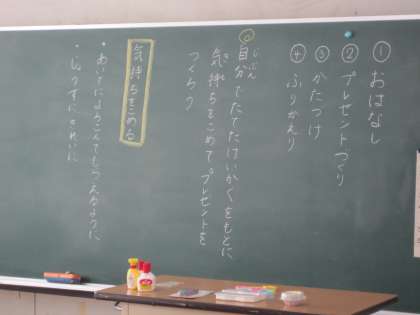 ① おはなし
② プレゼントづくり
③ かたづけ
④ ふりかえり
◎自分でたてたけいかくをもとに
じぶん
気持ちをこめてプレゼントを
つくろう
気持ちをこめる
・あいてによろこんでもらえるように
・ていねいに